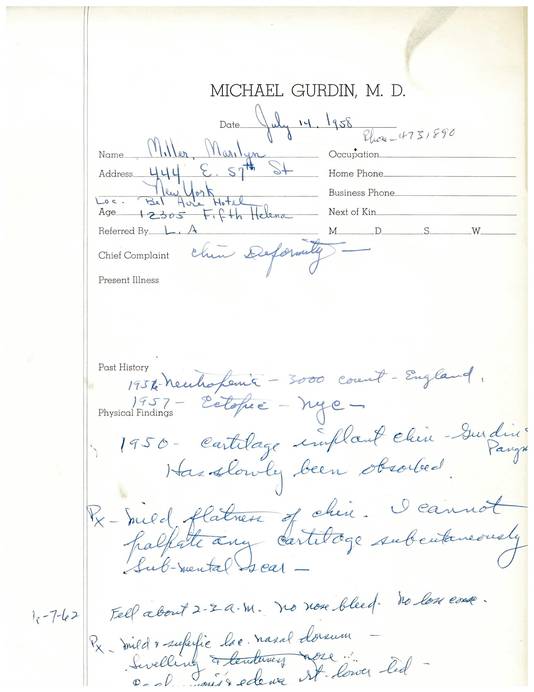 MICHAEL GURDIN, M. D.
Date July 14, 1958
Phone - 4731890
Name Miller, Marilyn
Occupation
Address 444 E. 57th St
Home Phone
New York
Business Phone
Loc. Bel Aire Hotel
Age 12305 Fifth Helena
Next of Kin
Referred By L. A
M D S W
Chief Complaint chin Deformity —
Present Illness
Past History
1956 - Neutropenia - 3000 count - England.
1957 - Ectopic - NYC -
Physical Findings
1950 - cartilage implant chin - Gurdin
Has slowly been absorbed.
Px - mild flatness of chin. I cannot
palpate any cartilage subcutaneously
Sub-mental scar -
6-7-62 Fell about 2-3 a.m. No nose bleed. No loss consc.
Px - mild superfic nasal dorsum -
Swelling & tenderness nose
edema rt. lower lid -